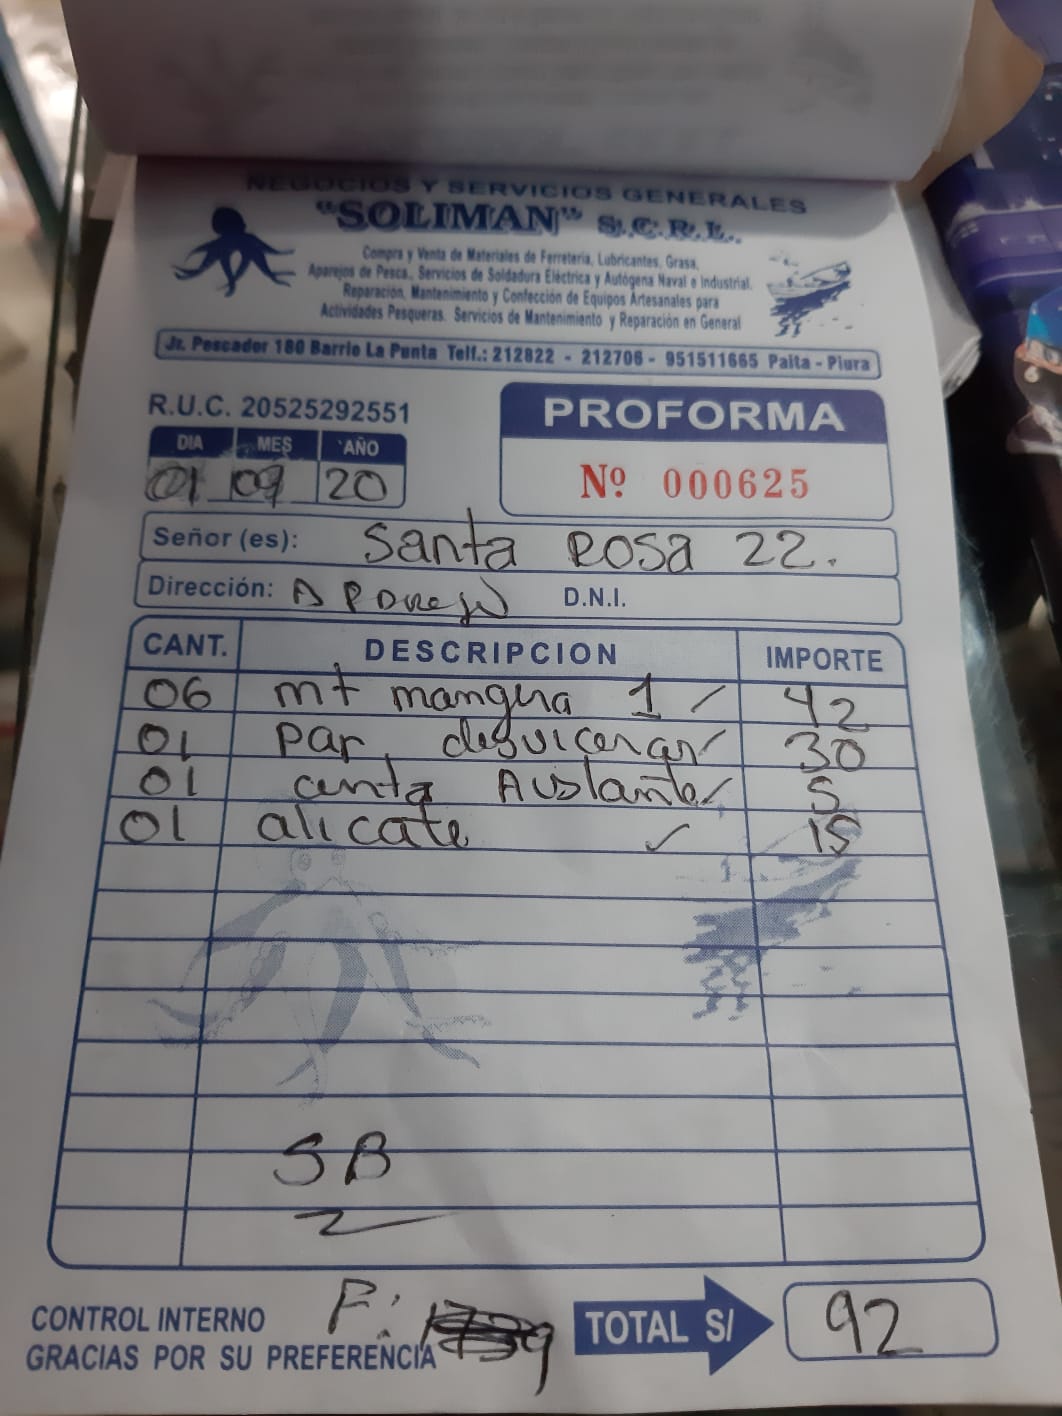 NEGOCIOS Y SERVICIOS GENERALES
"SOLIMAN" S.C.R.L.
Compra y Venta de Materiales de Ferretería, Lubricantes, Grasa,
Aparejos de Pesca, Servicios de Soldadura Eléctrica y Autógena Naval e Industrial.
Reparación, Mantenimiento y Confección de Equipos Artesanales para
Actividades Pesqueras. Servicios de Mantenimiento y Reparación en General
Jr. Pescador 180 Barrio La Punta Telf.: 212822 - 212706 - 951511665 Paita - Piura
R.U.C. 20525292551
PROFORMA
DIA MES AÑO
01 09 20
Nº 000625
Señor (es): Santa Rosa 22.
Dirección: D.N.I.
CANT. DESCRIPCION IMPORTE
06 mt manguera 1 42
01 par 30
01 cinta Aislante 5
01 alicate 15
SB
CONTROL INTERNO F:
GRACIAS POR SU PREFERENCIA
TOTAL S/ 92